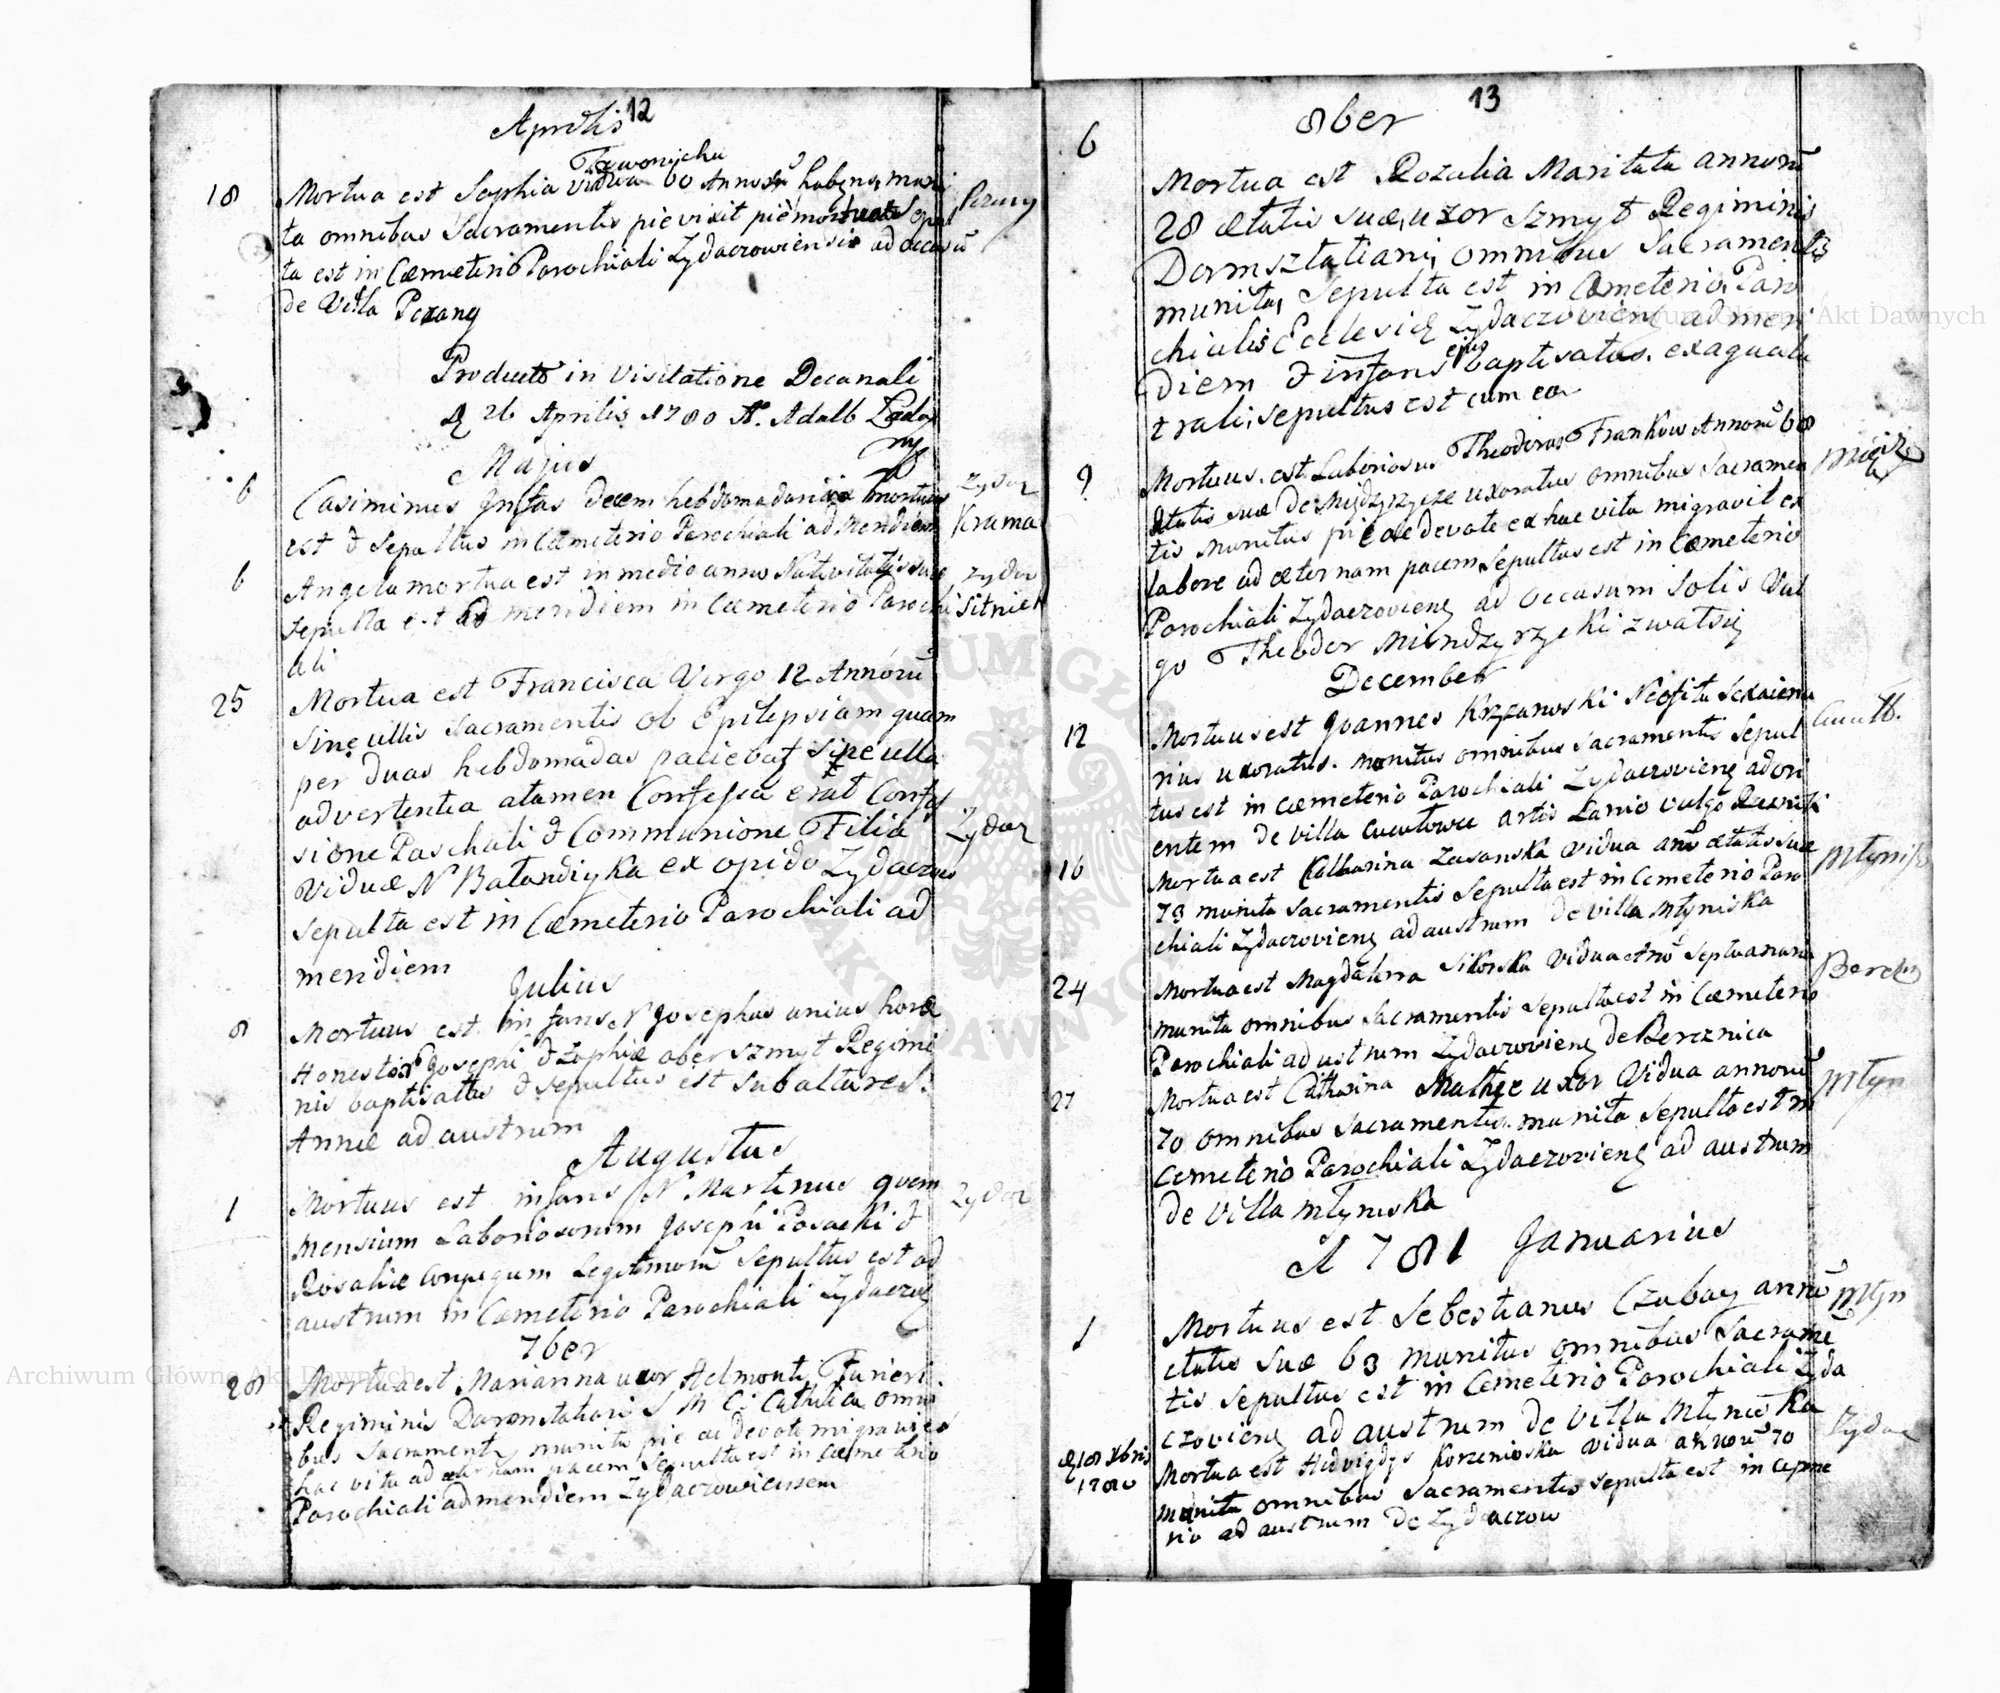 12
Aprilis
18
Mortua est Sophia vidua 60 Annorū habens muni
Perany
ta omnibus Sacramentis pie vixit pie mortua Sepul
ta est in Cœmeterio Parochiali Zydaczoviensi ad occasū
de Villa
Producto in Visitatione Decanali
26 Aprilis 1780 Adalb
Majus
6
Casimirus Infas decem hebdomadarū mortuus
Zydacz
est & Sepultus in Cœmeterio Parochiali ad Meridiem
Krama
6
Angela mortua est in medio anno Nativitatis suæ
Zydacz
Sepulta est ad meridiem in Cœmeterio Parochi
Sitnick
ali
25
Mortua est Francisca Virgo 12 Annorū
Sine ullis Sacramentis ob Epilepsiam quam
per duas hebdomadas paciebat Sine ulla
advertentia atamen Confessa erat Confes
sione Paschali & Communione Filia
Zydacz
Viduæ N ex opido Zydaczow
sepulta est in Cœmeterio Parochiali ad
meridiem
Julius
8
Mortuus est infans N Josephus unius horæ
Josephi & Zophiæ ober szmyt Regimi
nis baptisatus & Sepultus est sub altare S.
Annæ ad austrum
Augustus
1
Mortuus est infans N Martinus quem
Zydacz
Mensium Laboriosorum Josephi Posacki &
Rosaliæ Conjugum Legitimorū Sepultus est ad
austrum in Cœmeterio Parochiali
7ber
28
Mortua est Marianna uxor Helmonti Furieri
Regiminis S M C: omni
bus Sacramentis munita pie ac devote migravit ex
hac vita ad æternam pacem Sepulta est in Cœmeterio
Parochiali ad meridiem Zydaczowiensem
13
8ber
6
Mortua est Rozalia Maritata annorū
28 ætatis suæ, uxor Szmyt Regiminis
Darmsztatiani, omnibus Sacramentis
munita, Sepulta est in Cœmeterio, Paro
chialis Ecclesiæ Zydaczovien ad meri
diem & infans ejus baptisatus. ex aqua lu
trali, sepultus est cum ea
9
Mortuus. est Laboriosus Theodorus Frankow Annorū 68
ætatis suæ de Mijdzyrzycze uxoratus omnibus Sacramen
tis munitus pie ac devote ex hac vita migravit ex
labore ad æternam pacem, Sepultus est in Cœmeterio
Parochiali Zydaczovien ad occasum Solis Vul
go Theoder Miendzyrzycki zwał się
December
12
Mortuus est Joannes Krzyanoski Neofita Sexaiena
rius uxoratus. munitus omnibus Sacramentis Sepul
tus est in Cœmeterio Parochiali Zydaczovien ad ori
entem de villa artis Lanio vulgo
16
Mortua est Catharina Zasanska vidua anō ætatis suæ
73 munita Sacramentis Sepulta est in Cemeterio Paro
chiali Zydaczovien ad austrum de villa Młyniska
24
Mortua est Magdalena Sikorska vidua
Bercz
munita omnibus Sacramentis Sepulta est in Cœmeterio
Parochiali ad ustrum Zydaczovien de Bereznica
27
Mortua est Catharina uxor Vidua annorū
Młyn
70 omnibus Sacramentis. munita Sepulta est in
Cemeterio Parochiali Zydaczovien ad austrum
de villa Młyniska
A 1781 Januarius
1
Mortuus est Sebestianus Czabay annō
Młyn
ætatis suæ 63 munitus omnibus Sacrame
tis Sepultus est in Cemeterio Parochiali Zyda
czovien ad austrum de Villa Młyniska
18 Xbris
1780
Mortua est Hedvigdys Korzenioska vidua annorū 70
Zydac
munita omnibus Sacramentis Sepulta est in Ceme
rio ad austrum de Zydaczow
Archiwum Główne Akt Dawnych